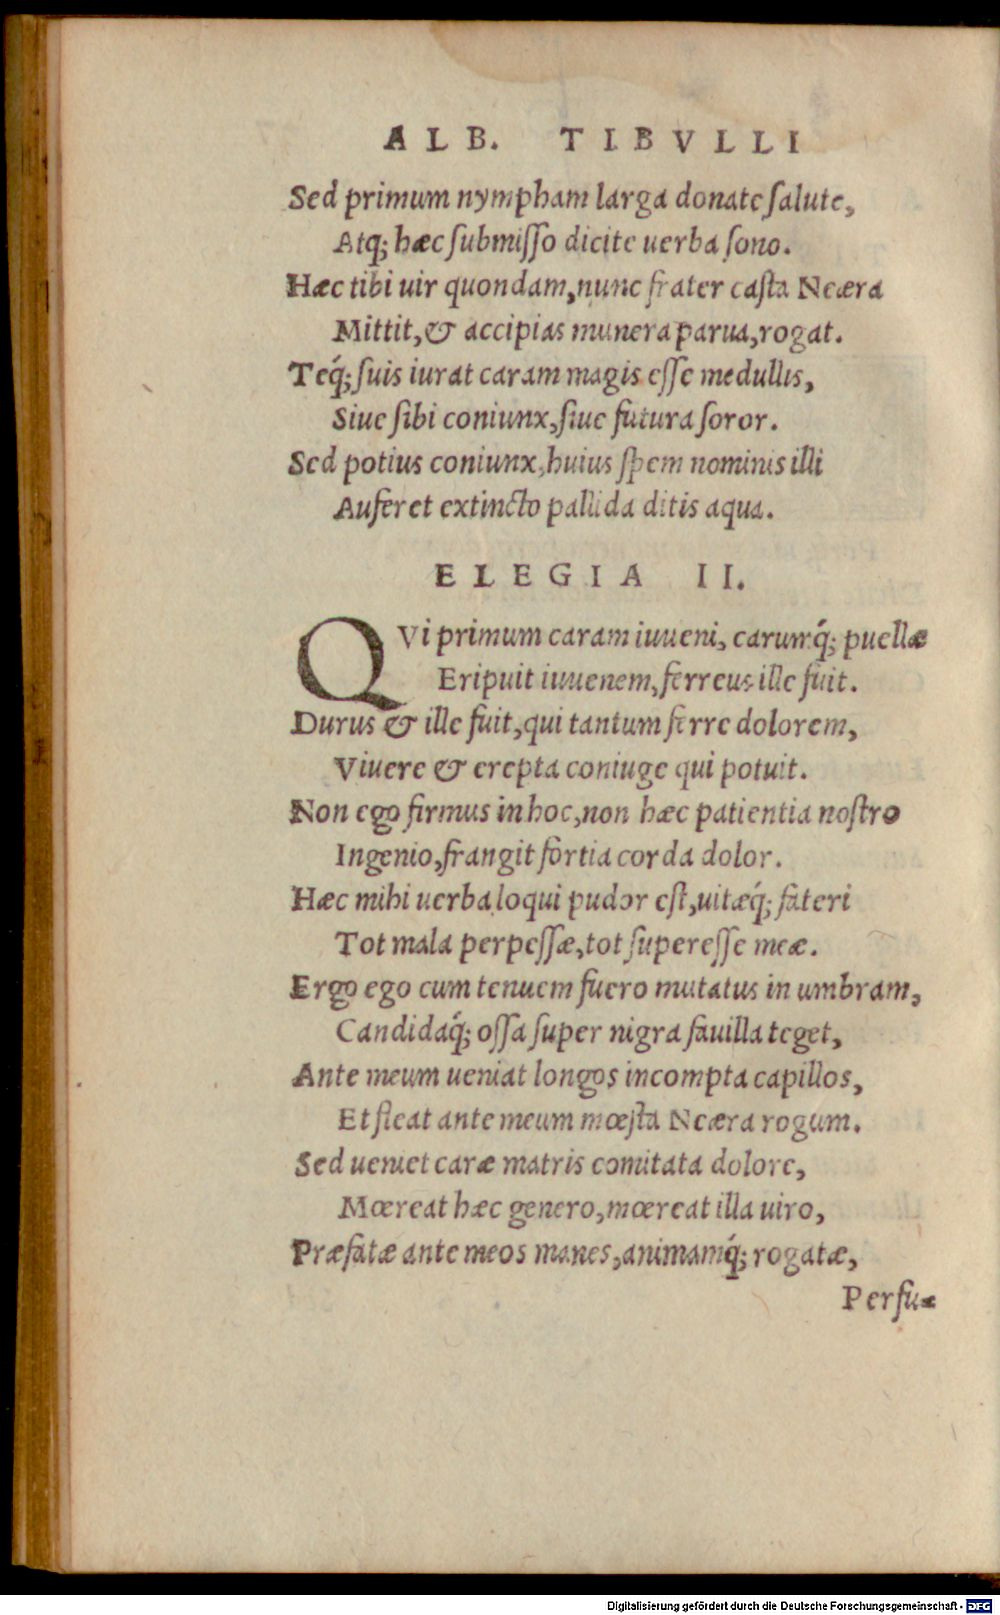 ALB. TIBVLLI
Sed primum nympham larga donate ſalute,
Atq́; hæc ſubmiſſo dicite uerba ſono.
Hæc tibi uir quondam, nunc frater caſta Neæra
Mittit, & accipias munera parua, rogat.
Teq́; ſuis iurat caram magis eſſe medullis,
Siue ſibi coniunx, ſiue futura ſoror.
Sed potius coniunx, huius ſpem nominis illi
Auferet extincto pallida ditis aqua.
ELEGIA II.
QVi primum caram iuueni, carumq́; puellæ
Eripuit iuuenem, ferreus ille fuit.
Durus & ille fuit, qui tantum ferre dolorem,
Viuere & erepta coniuge qui potuit.
Non ego firmus in hoc, non hæc patientia noſtro
Ingenio, frangit fortia corda dolor.
Hæc mihi uerba loqui pudor eſt, uitæq́; fateri
Tot mala perpeſſæ, tot ſupereſſe meæ.
Ergo ego cum tenuem fuero mutatus in umbram,
Candidaq́; oſſa ſuper nigra fauilla teget,
Ante meum ueniat longos incompta capillos,
Et fleat ante meum mœſta Neæra rogum.
Sed ueniet caræ matris comitata dolore,
Mœreat hæc genero, mœreat illa uiro,
Præfatæ ante meos manes, animamq́; rogatæ,
Perfu=
Digitalisierung gefördert durch die Deutsche Forschungsgemeinschaft - DFG